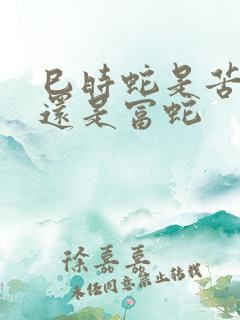 巳時蛇是苦
還是富蛇
徐嘉嘉
未经同意禁止转载